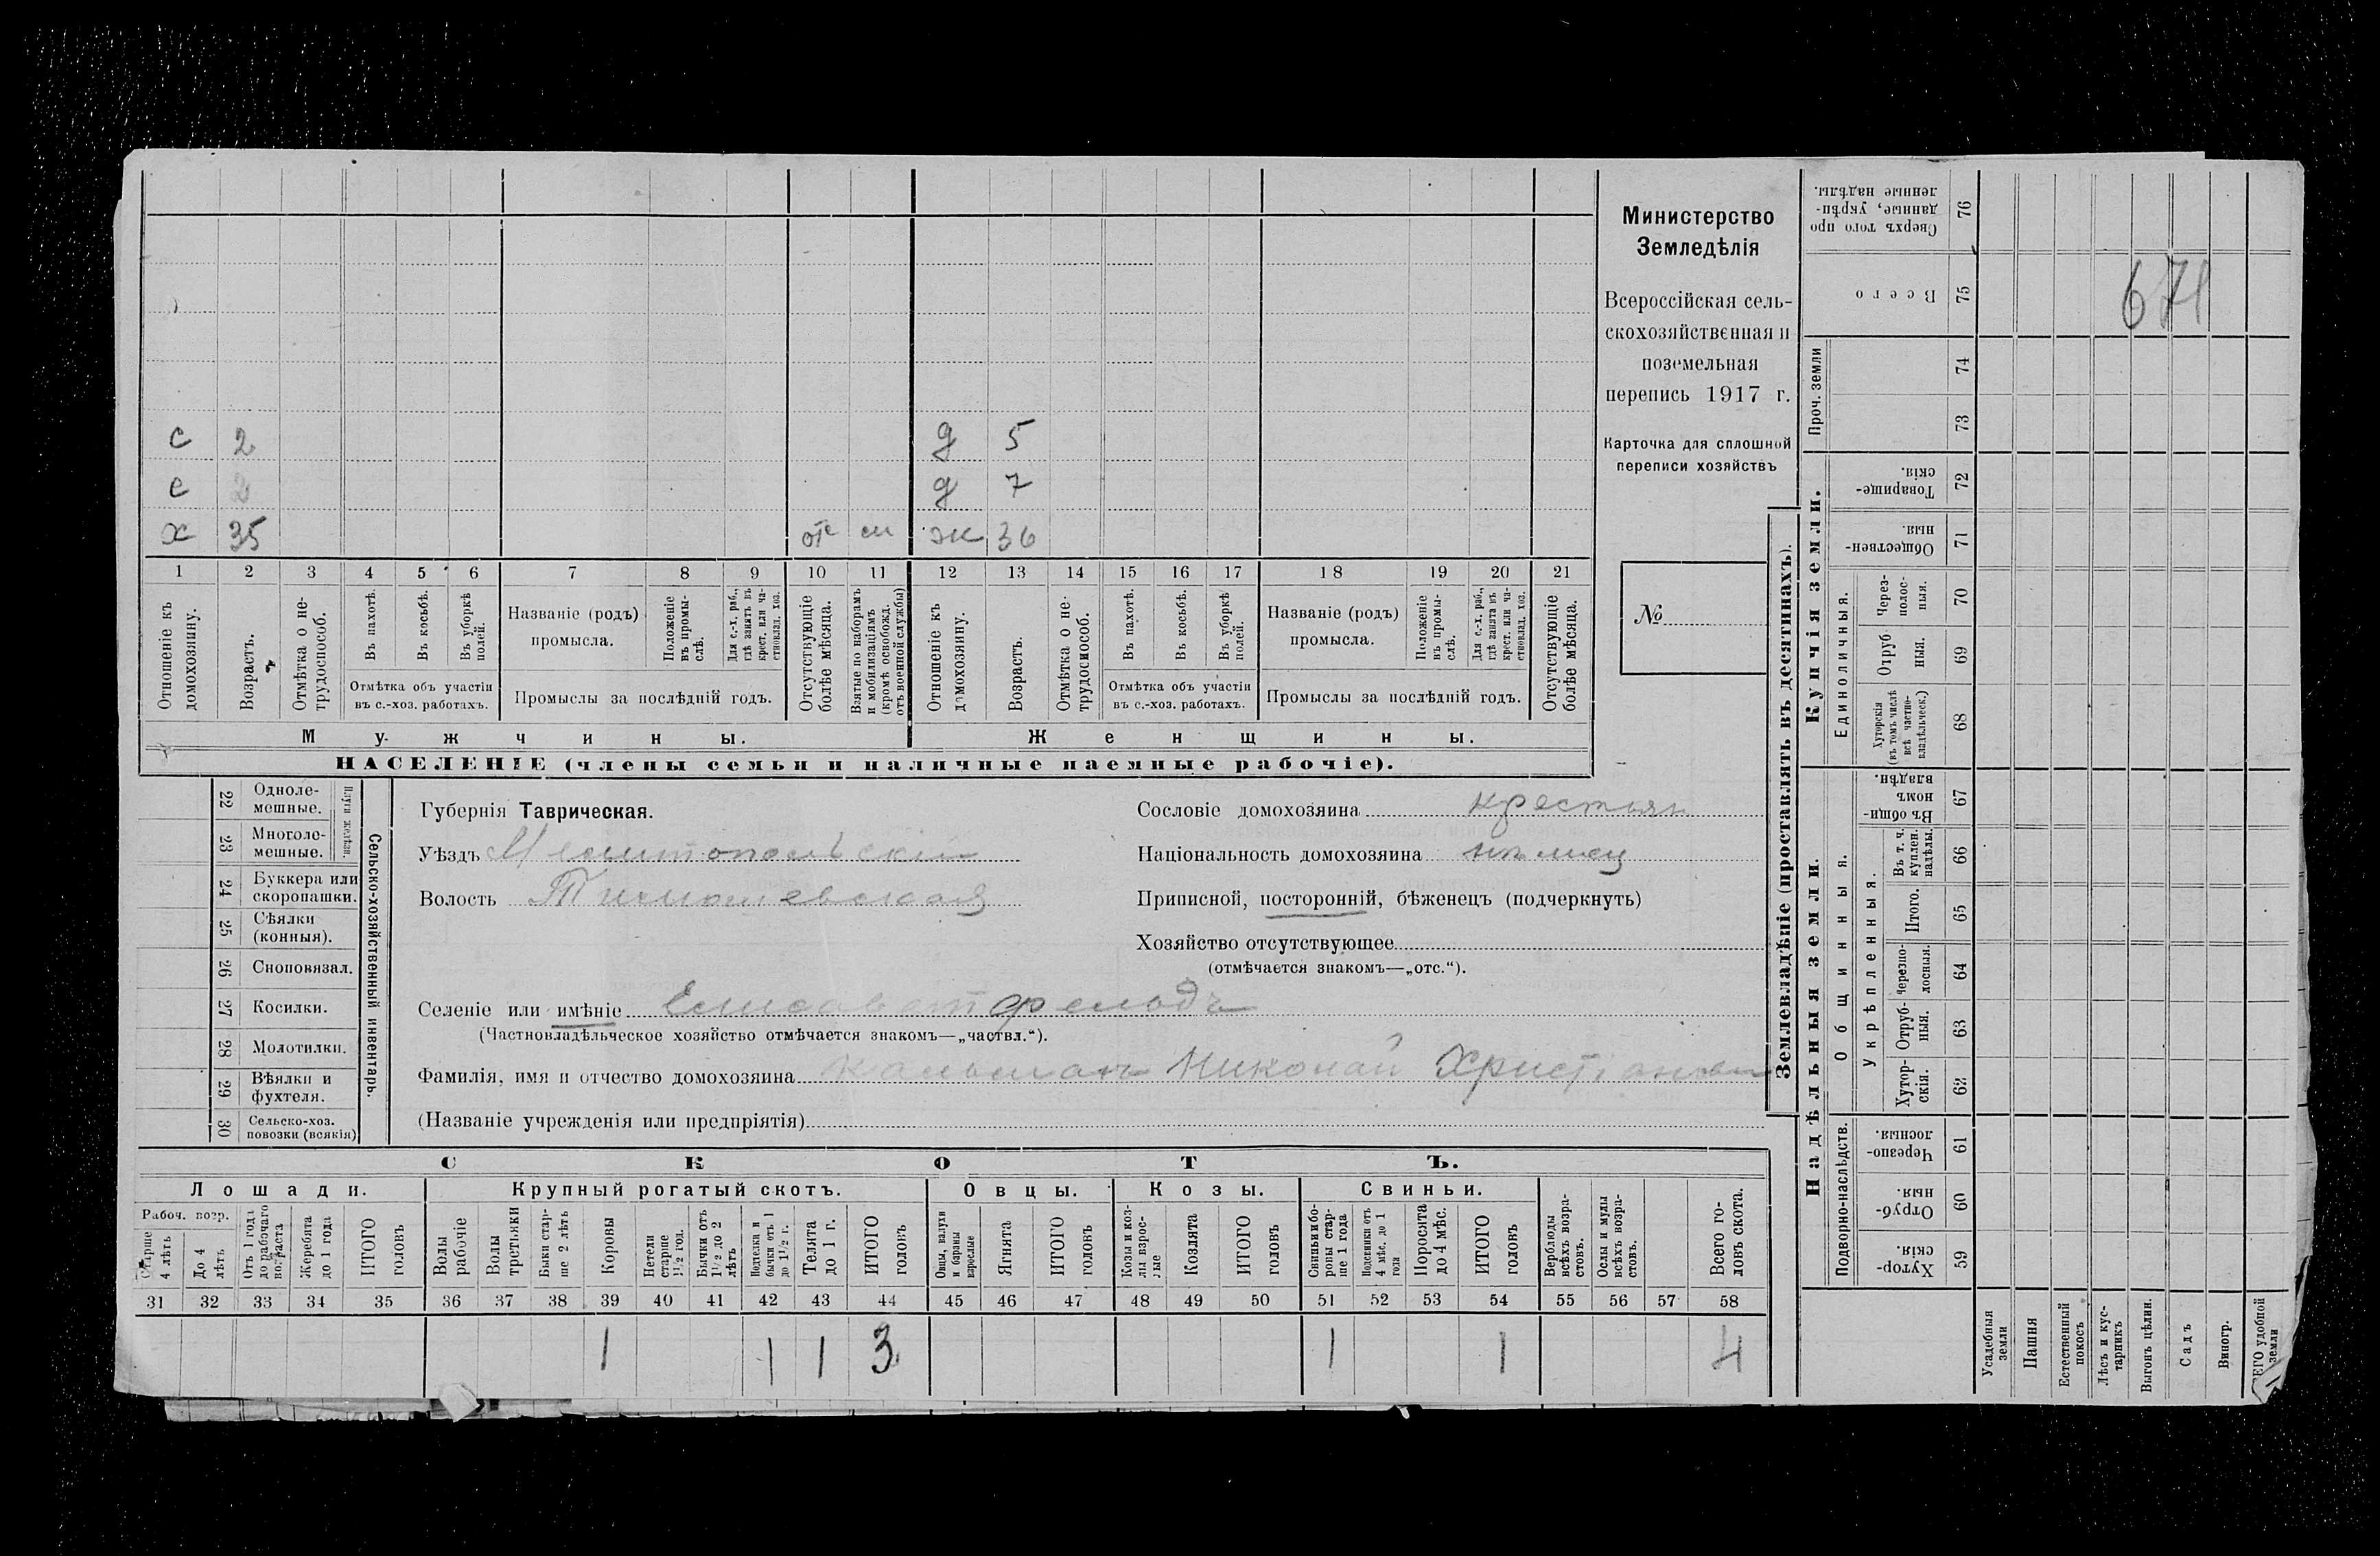 Министерство
Земледѣлія
Всероссійская сель-
скохозяйственная и
поземельная
перепись 1917 г.
Карточка для сплошной
переписи хозяйствъ
№
с 2 д 5
с 2 д 7
х 35 отс м ж 36
1 2 3 4 5 6 7 8 9 10 11 12 13 14 15 16 17 18 19 20 21
Отношеніе къ домохозяину.
Возрастъ.
Отмѣтка о не-трудоспособ.
Въ пахотѣ.
Въ косьбѣ.
Въ уборкѣ полей.
Отмѣтка объ участіи
въ с.-хоз. работахъ.
Названіе (родъ)
промысла.
Положеніе въ промы-слѣ.
Для с.-х. раб., гдѣ занятъ въ крест. или ча-стновлад. хоз.
Промыслы за послѣдній годъ.
Отсутствующіе болѣе мѣсяца.
Взятые по наборамъ и мобилизаціямъ (кромѣ освобожд. отъ военной службы)
Отношеніе къ домохозяину.
Возрастъ.
Отмѣтка о не-трудоспособ.
Въ пахотѣ.
Въ косьбѣ.
Въ уборкѣ полей.
Отмѣтка объ участіи
въ с.-хоз. работахъ.
Названіе (родъ)
промысла.
Положеніе въ промы-слѣ.
Для с.-х. раб., гдѣ занята въ крест. или ча-стновлад. хоз.
Промыслы за послѣдній годъ.
Отсутствующіе болѣе мѣсяца.
Мужчины.
Женщины.
НАСЕЛЕНІЕ (члены семьи и наличные наемные рабочіе).
Сельско-хозяйственный инвентарь.
Плуги желѣзн.
22 Одноле-мешные.
23 Многоле-мешные.
24 Буккера или скоропашки.
25 Сѣялки (конныя).
26 Сноповязал.
27 Косилки.
28 Молотилки.
29 Вѣялки и фухтеля.
30 Сельско-хоз. повозки (всякія)
Губернія Таврическая.
Уѣздъ Мелитопольскій
Волость Тимошевская
Сословіе домохозяина крестьян
Національность домохозяина нѣмец
Приписной, посторонній, бѣженецъ (подчеркнуть)
Хозяйство отсутствующее
(отмѣчается знакомъ—„отс.“).
Селеніе или имѣніе Елисаветфельдъ
(Частновладѣльческое хозяйство отмѣчается знакомъ—„частвл.“).
Фамилія, имя и отчество домохозяина Кальманъ Николай Христіанович
(Названіе учрежденія или предпріятія)
СКОТЪ.
Лошади. Крупный рогатый скотъ. Овцы. Козы. Свиньи.
Рабоч. возр.
Старше 4 лѣтъ
До 4 лѣтъ
Отъ 1 года до рабочаго возраста
Жеребята до 1 года
ИТОГО головъ
Волы рабочіе
Волы третьяки
Быки стар-ше 2 лѣтъ
Коровы
Нетели старше 1½ год.
Бычки отъ 1½ до 2 лѣтъ
Подтелки и бычки отъ 1 до 1½ г.
Телята до 1 г.
ИТОГО головъ
Овцы, валухи и бараны взрослые
Ягнята
ИТОГО головъ
Козы и коз-лы взрос-лые
Козлята
ИТОГО головъ
Свиньи и бо-ровы стар-ше 1 года
Подсвинки отъ 4 мѣс. до 1 года
Поросята до 4 мѣс.
ИТОГО головъ
Верблюды всѣхъ возра-стовъ.
Ослы и мулы всѣхъ возра-стовъ.
Всего го-ловъ скота.
31 32 33 34 35 36 37 38 39 40 41 42 43 44 45 46 47 48 49 50 51 52 53 54 55 56 57 58
1 1 1 3 1 1 4
Землевладѣніе (проставлять въ десятинахъ).
Надѣльныя земли.
Купчія земли.
Проч. земли
Подворно-наслѣдств.
Общинныя.
Укрѣпленныя.
Единоличныя.
Сверхъ того про-данные, укрѣп-ленные надѣлы. 76
Всего 75
74
73
Товарище-скія. 72
Обществен-ныя. 71
Через-полос-ныя. 70
Отруб-ныя. 69
Хуторскія (въ томъ числѣ всѣ частно-владѣльческ.) 68
Въ общин-номъ владѣн. 67
Въ т. ч. куплен. надѣлы. 66
Итого. 65
Черезпо-лосныя. 64
Отруб-ныя. 63
Хутор-скія. 62
Черезпо-лосныя. 61
Отруб-ныя. 60
Хутор-скія. 59
671
Усадебныя земли
Пашня
Естественный покосъ
Лѣсъ и кус-тарникъ
Выгонъ цѣлин.
Садъ
Виногр.
удобной земли